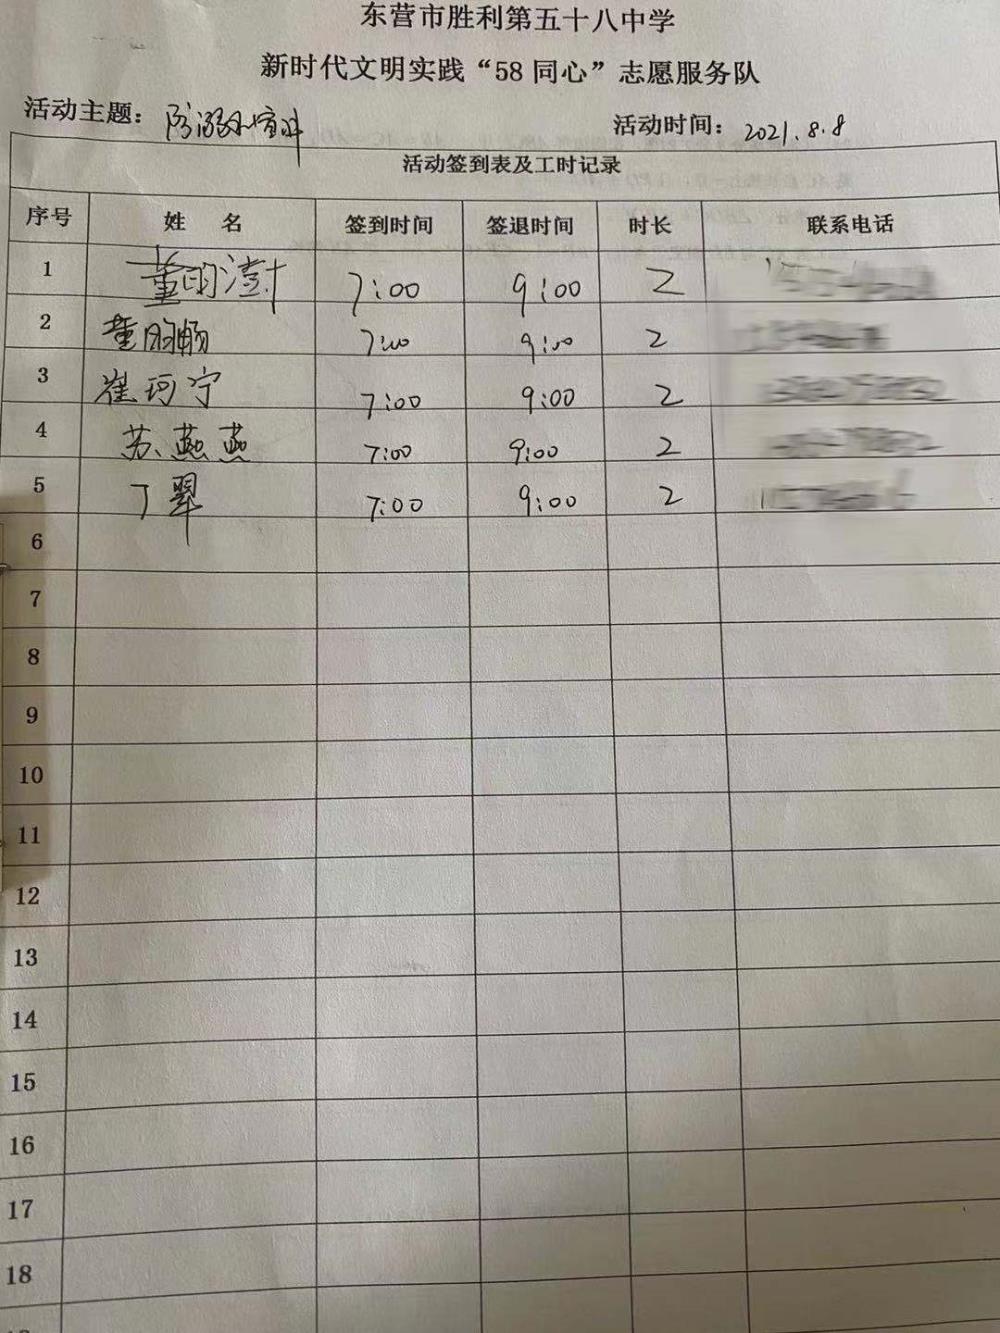 东营市胜利第五十八中学
新时代文明实践“58同心”志愿服务队
活动主题：防溺水宣讲 活动时间：2021.8.8
活动签到表及工时记录
序号 姓 名 签到时间 签退时间 时长 联系电话
1 董明澍 7:00 9:00 2
2 董明畅 7:00 9:00 2
3 崔珂宁 7:00 9:00 2
4 苏燕燕 7:00 9:00 2
5 丁翠 7:00 9:00 2
6
7
8
9
10
11
12
13
14
15
16
17
18